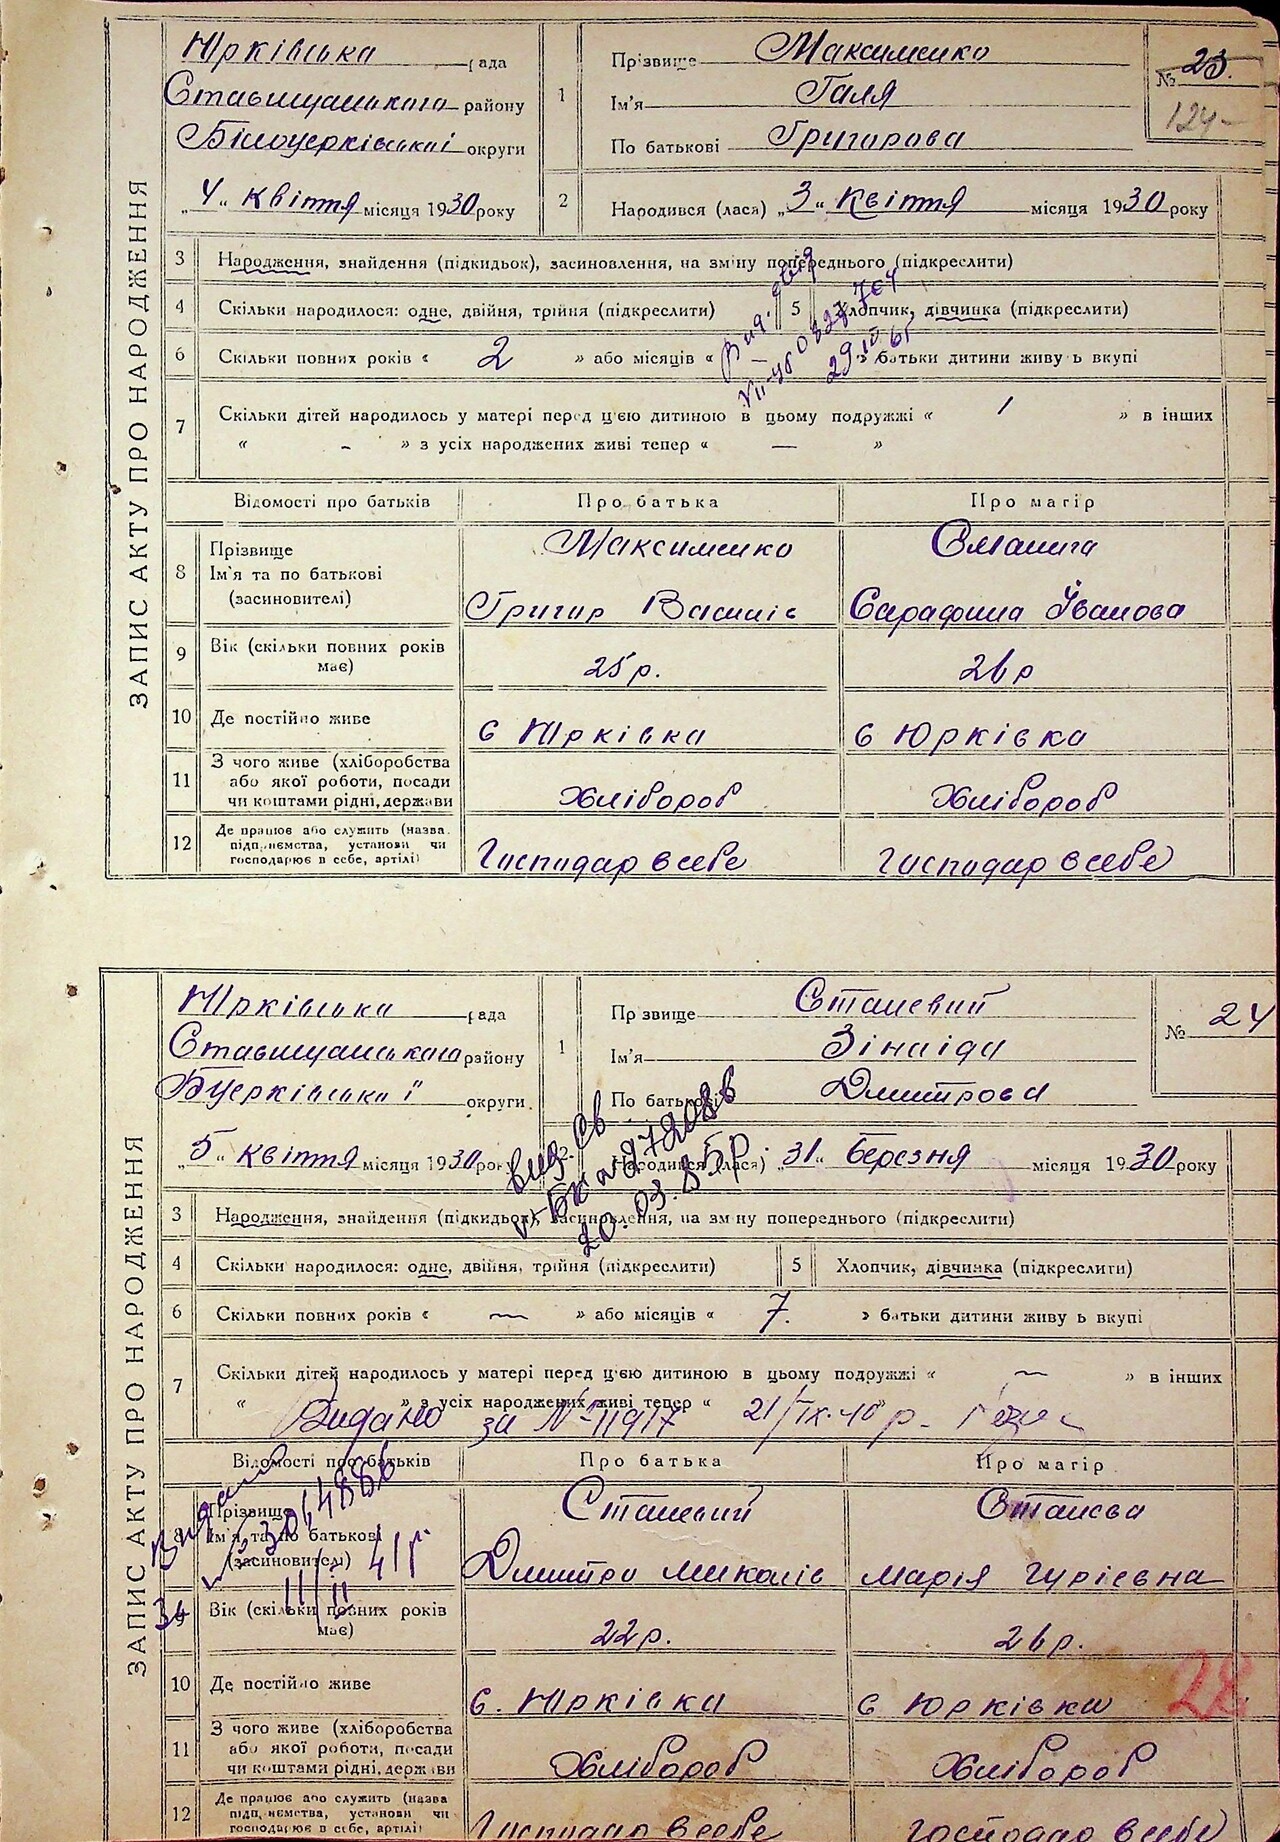 ЗАПИС АКТУ ПРО НАРОДЖЕННЯ
Юрківська рада
Ставищанського району
Білоцерківської округи
„4“ квіття місяця 1930 року
1
Прізвище Максименко
Ім'я Галя
По батькові Григорова
№ 23.
124
2 Народився (лася) „3“ квіття місяця 1930 року
3 Народження, знайдення (підкидьок), засиновлення, на зміну попереднього (підкреслити)
4 Скільки народилося: одне, двійня, трійня (підкреслити) 5 Хлопчик, дівчинка (підкреслити)
6 Скільки повних років « 2 » або місяців « — » батьки дитини живуть вкупі
7 Скільки дітей народилось у матері перед цією дитиною в цьому подружжі « 1 » в інших
« - » з усіх народжених живі тепер « — »
Відомості про батьків Про батька Про матір
8 Прізвище
Ім'я та по батькові
(засиновителі)
Максименко
Григор Василів
Сманига
Сарафина Іванова
9 Вік (скільки повних років має) 25 р. 26 р
10 Де постійно живе с Юрківка с Юрківка
11 З чого живе (хліборобства
або якої роботи, посади
чи коштами рідні, держави
Хлібороб Хлібороб
12 Де працює або служить (назва
підприємства, установи чи
господарює в себе, артілі)
Господар в себе Господар в себе
ЗАПИС АКТУ ПРО НАРОДЖЕННЯ
Юрківська рада
Ставищанського району
Бцерківської округи
„5“ квіття місяця 1930 року
1
Прізвище Сталевий
Ім'я Зінаіда
По батькові Дмитрова
№ 24
Народився (лася) „31“ березня місяця 1930 року
20.03.85р.
3 Народження, знайдення (підкидьок), засиновлення, на зміну попереднього (підкреслити)
4 Скільки народилося: одне, двійня, трійня (підкреслити) 5 Хлопчик, дівчинка (підкреслити)
6 Скільки повних років « — » або місяців « 7. » батьки дитини живуть вкупі
7 Скільки дітей народилось у матері перед цією дитиною в цьому подружжі « — » в інших
« » з усіх народжених живі тепер «
Видано за № 11917 21/IX-40 р.
Відомості про батьків Про батька Про матір
8 Прізвище
Ім'я та по батькові
(засиновителі)
Видано
№ 3064886
11/II 41 р.
Сталевий
Дмитро Миколів
Сталева
Марія Гуріевна
9 Вік (скільки повних років має) 22 р. 26 р.
10 Де постійно живе с. Юрківка с Юрківка
28
11 З чого живе (хліборобства
або якої роботи, посади
чи коштами рідні, держави
Хлібороб Хлібороб
12 Де працює або служить (назва
підприємства, установи чи
господарює в себе, артілі)
Господар в себе господар в себе